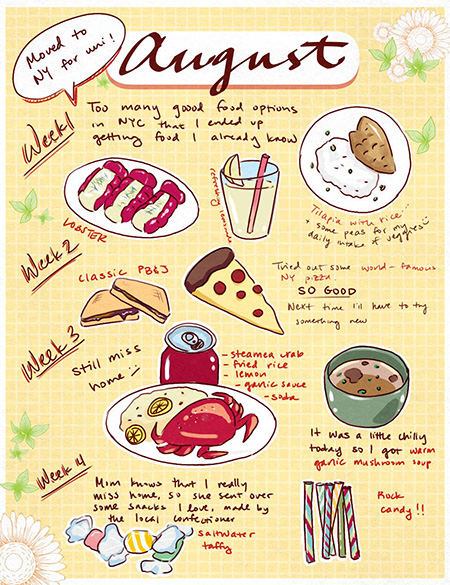 Moved to
NY for uni!
August
Week 1
Too many good food options
in NYC that I ended up
getting food I already know
LOBSTER
lemonade
Tilapia with rice
+ some peas for my
daily intake of veggies
Week 2
classic PB&J
Tried out some world-famous
NY pizza
SO GOOD
Next time I'll have to try
something new
Week 3
Still miss
home
- steamed crab
- fried rice
- lemon
- garlic sauce
- soda
It was a little chilly
today so I got warm
garlic mushroom soup
Week 4
Mom knows that I really
miss home, so she sent over
some snacks I love, made by
the local confectioner
saltwater
taffy
Rock
candy!!